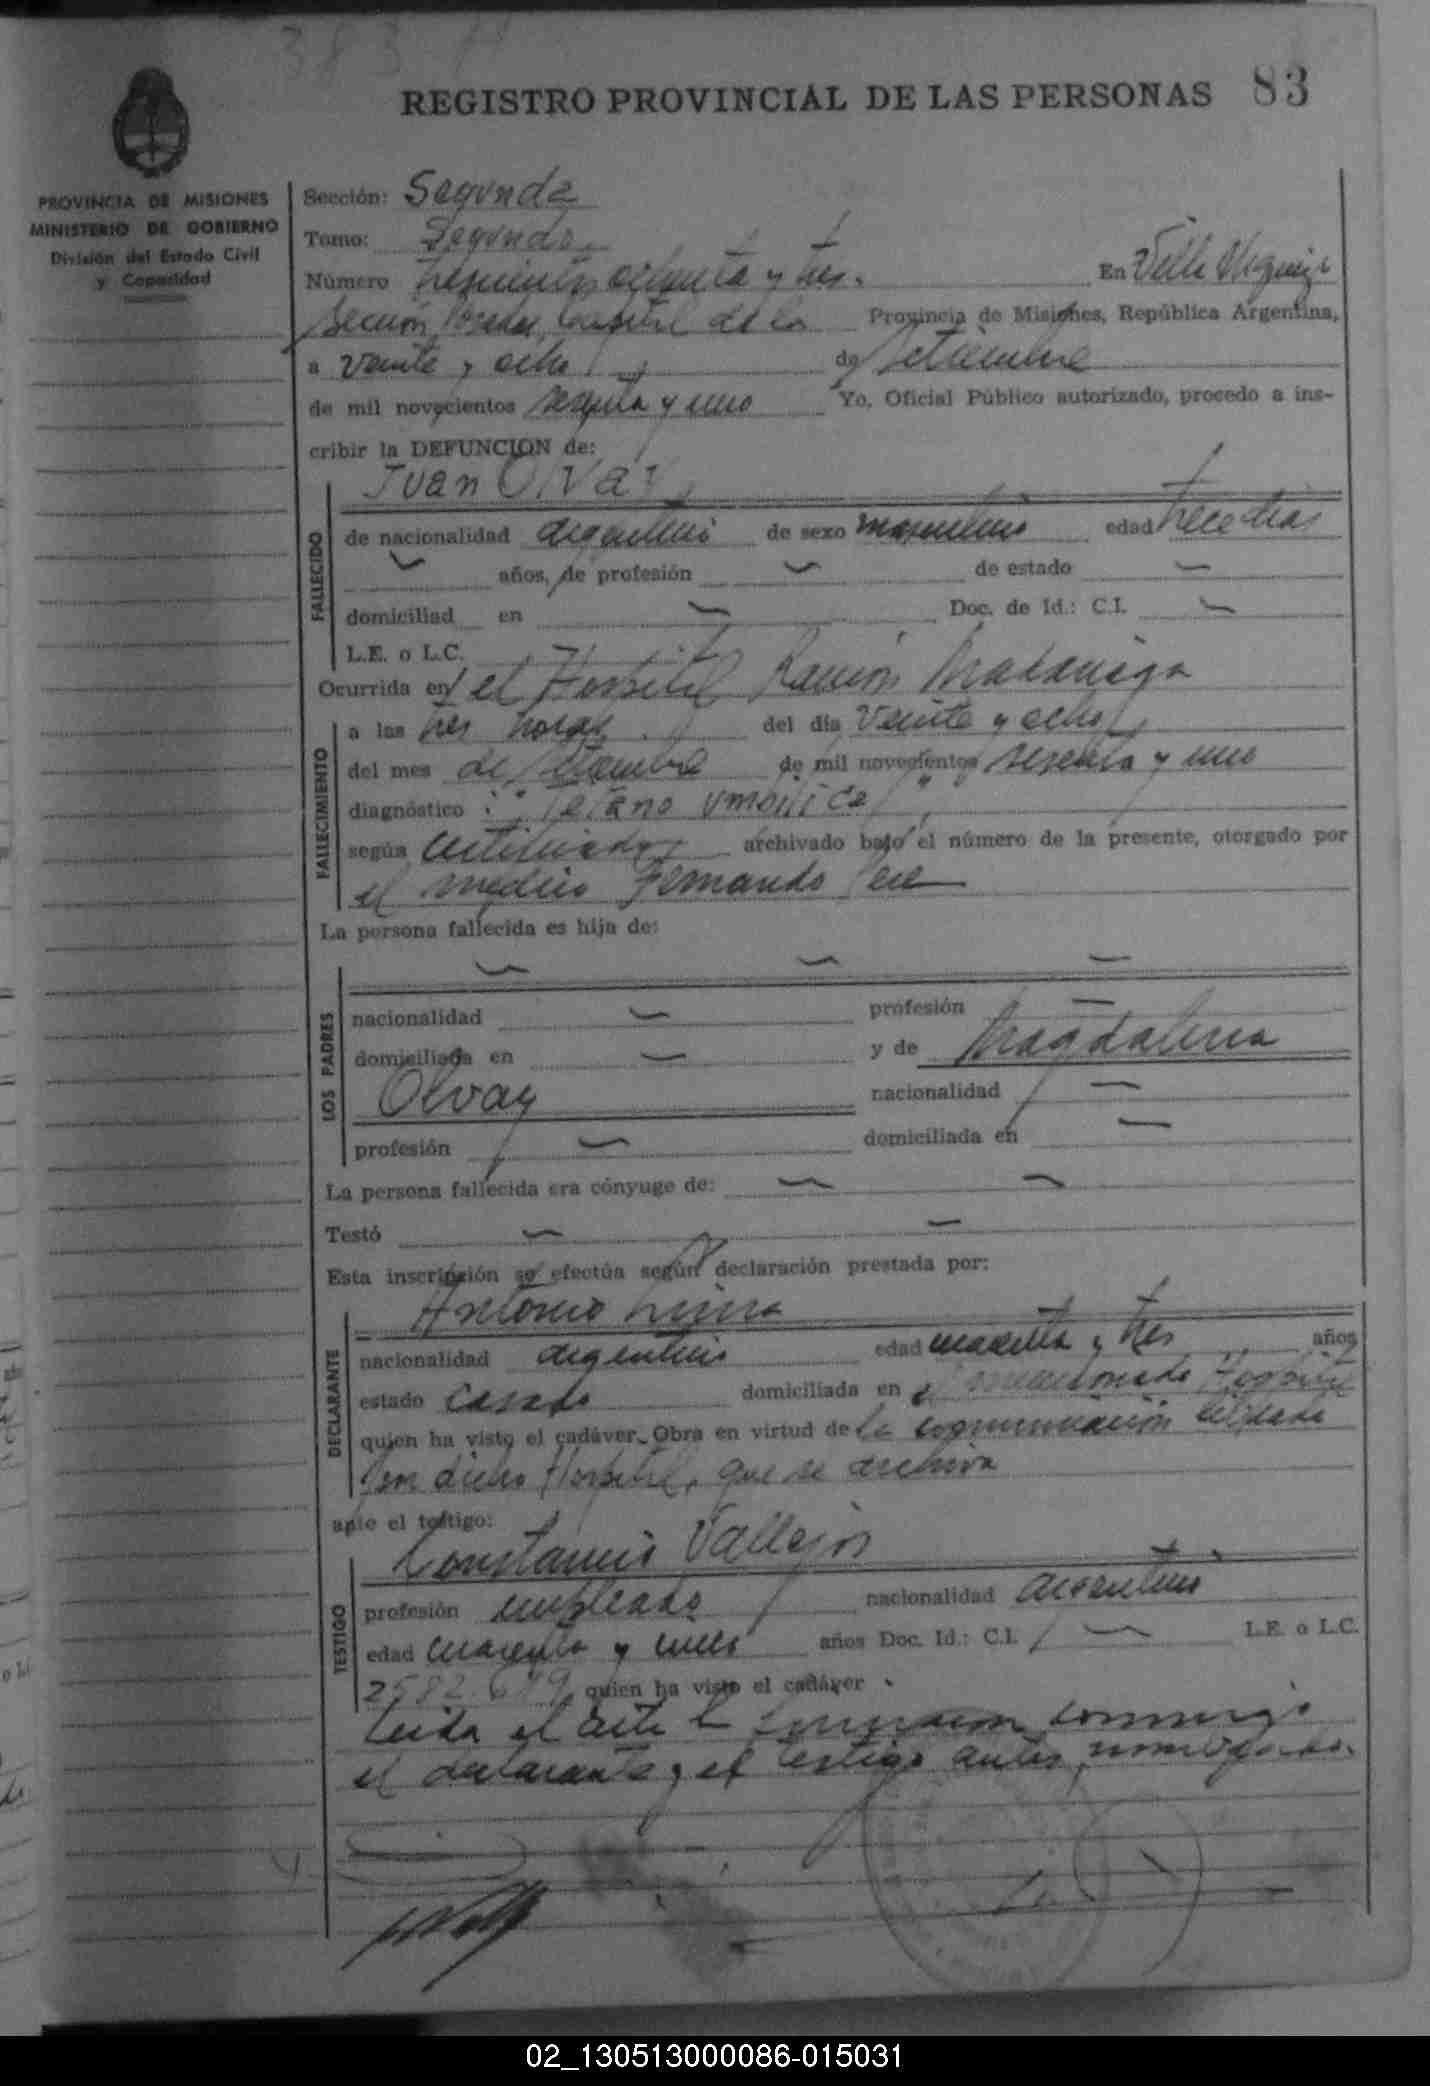 383
REGISTRO PROVINCIAL DE LAS PERSONAS 83
PROVINCIA DE MISIONES
MINISTERIO DE GOBIERNO
División del Estado Civil
y Capacidad
Sección: Segunda
Tomo: Segundo
Número trescientos ochenta y tres. En Villa Urquiza
Sección Posadas, Capital de la Provincia de Misiones, República Argentina,
a veinte y ocho de setiembre
de mil novecientos sesenta y uno Yo, Oficial Público autorizado, procedo a ins-
cribir la DEFUNCION de:
Juan Olvay
FALLECIDO
de nacionalidad argentino de sexo masculino edad trece días
años, de profesión de estado
domiciliad en Doc. de Id.: C.I.
L.E. o L.C.
Ocurrida en el Hospital Ramón Madariaga
FALLECIMIENTO
a las tres horas del día veinte y ocho
del mes de setiembre de mil novecientos sesenta y uno
diagnóstico : "Tetano umbilical",
según certificado archivado bajo el número de la presente, otorgado por
el médico Fernando
La persona fallecida es hija de:
LOS PADRES
nacionalidad profesión
domiciliada en y de Magdalena
Olvay nacionalidad
profesión domiciliada en
La persona fallecida era cónyuge de:
Testó
Esta inscripción se efectúa según declaración prestada por:
Antonio
DECLARANTE
nacionalidad argentino edad cuarenta y tres años
estado casado domiciliada en el mencionado Hospital
quien ha visto el cadáver. Obra en virtud de la comunicación
por dicho Hospital, que se archiva
ante el testigo:
Constancio Vallejos
TESTIGO
profesión empleado nacionalidad argentino
edad cuarenta y años Doc. Id.: C.I. L.E. o L.C.
quien ha visto el cadáver .
Leida el acta la conmigo
el declarante y el testigo antes nombrados.
02_130513000086-015031